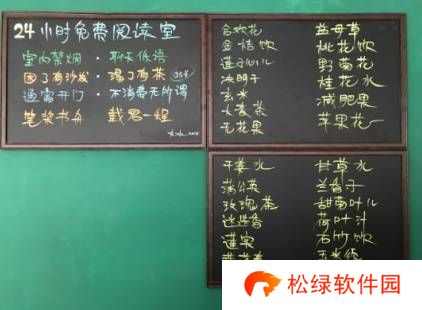 24小时免费阅读室
室内禁烟 · 聊天低语
困了有沙发 · 渴了有茶
通宵开门 · 不消费无所谓
笔桨书舟 载君一程
合欢花
金桔饮
莲子心儿
决明子
玄米
大麦茶
无花果
益母草
桃花饮
野菊花
桂花水
减肥果
苹果花
干姜水
蒲公英
玫瑰茶
迷迭香
莲实
甘草水
兰香子
甜南叶儿
荷叶汁
石竹饮
玉米须
松绿软件园